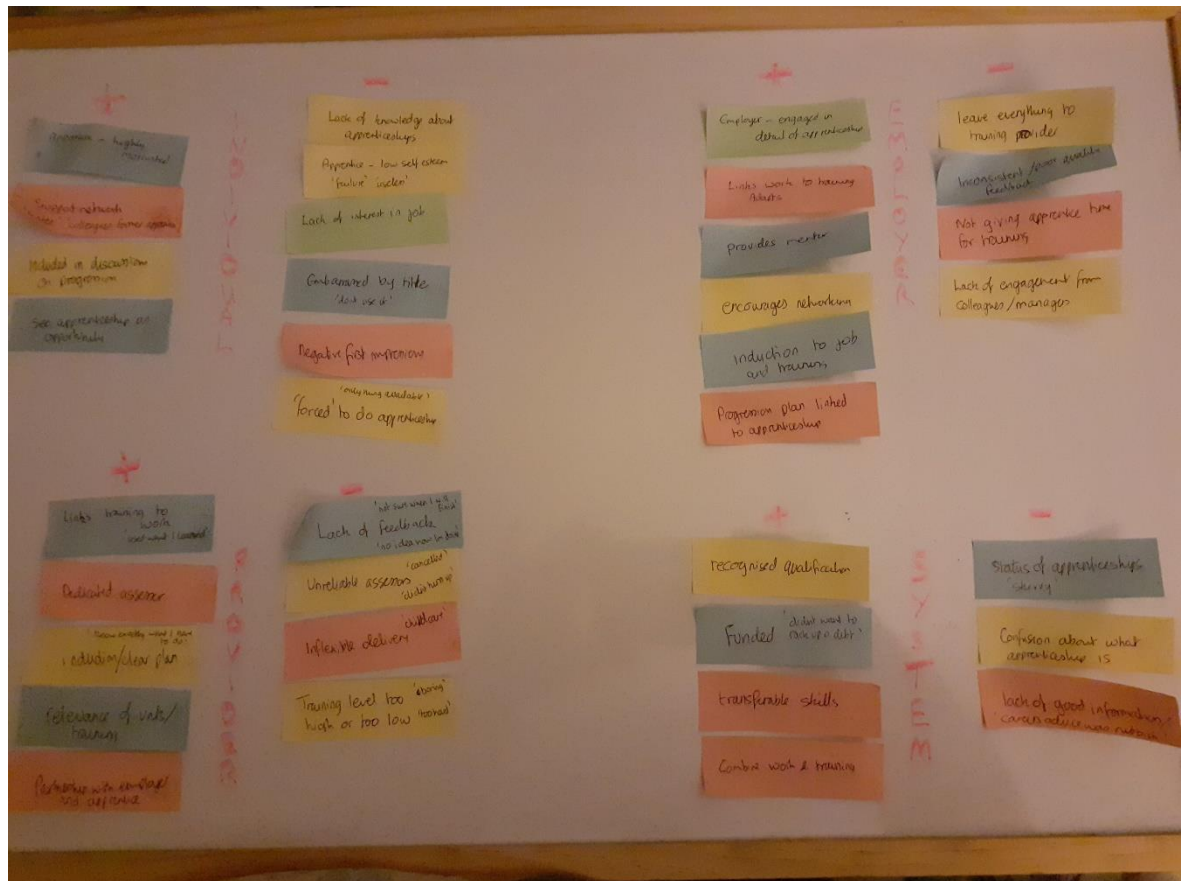 +
-
INDIVIDUAL
highly
motivated
Support network
colleagues former apprentice
Included in discussions
on progression
See apprenticeship as
opportunity
Lack of knowledge about
apprenticeships
Apprentice - low self esteem
'failure' 'useless'
Lack of interest in job
Embarrassed by title
'don't use it'
Negative first impressions
'only thing available'
'forced' to do apprenticeship
+
-
EMPLOYER
Employer - engaged in
detail of apprenticeship
Links work to training
Adapts
Provides mentor
encourages networking
Induction to job
and training
Progression plan linked
to apprenticeship
leave everything to
training provider
Inconsistent/poor quality
feedback
Not giving apprentice time
for training
Lack of engagement from
colleagues/managers
+
-
PROVIDER
Links training to
work
'used what I learned'
Dedicated assessor
'know exactly what I have
to do'
induction/clear plan
relevance of units/
training
Partnership with employer
and apprentice
'not sure when I will
finish'
Lack of feedback
'no idea how I'm doing'
'cancelled'
Unreliable assessors
'didn't turn up'
'childcare'
Inflexible delivery
Training level too 'boring'
high or too low 'too hard'
+
-
SYSTEM
recognised qualification
Funded 'didn't want to
rack up a debt'
transferable skills
Combine work & training
Status of apprenticeships
Confusion about what
apprenticeship is
lack of good information/
'careers advice was rubbish'